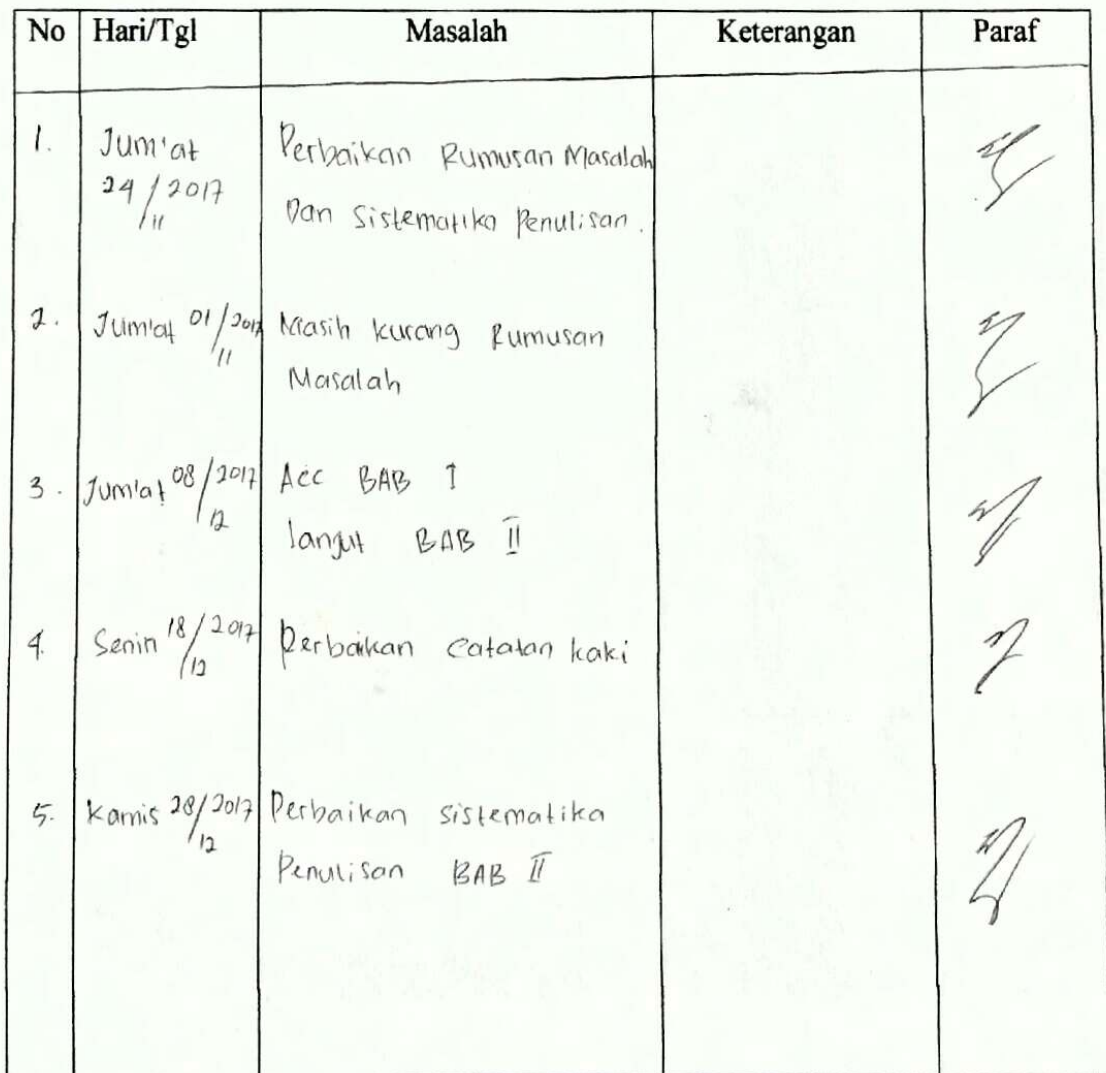 No Hari/Tgl Masalah Keterangan Paraf
1. Jum'at Perbaikan Rumusan Masalah
24/11 2017 Dan Sistematika Penulisan.
2. Jum'at 01/11 2017 Masih kurang Rumusan
Masalah
3. Jum'at 08/12 2017 Acc BAB I
lanjut BAB II
4. Senin 18/12 2017 Perbaikan catatan kaki
5. Kamis 28/12 2017 Perbaikan sistematika
Penulisan BAB II